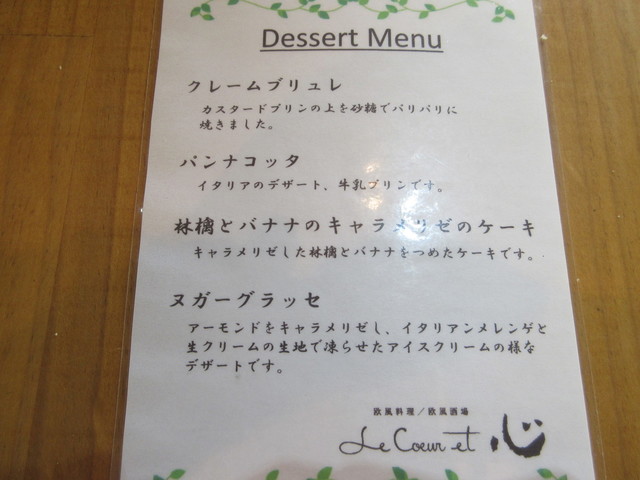 Dessert Menu
クレームブリュレ
カスタードプリンの上を砂糖でパリパリに
焼きました。
パンナコッタ
イタリアのデザート、牛乳プリンです。
林檎とバナナのキャラメリゼのケーキ
キャラメリゼした林檎とバナナをつめたケーキです。
ヌガーグラッセ
アーモンドをキャラメリゼし、イタリアンメレンゲと
生クリームの生地で凍らせたアイスクリームの様な
デザートです。
欧風料理／欧風酒場
Le Coeur et 心